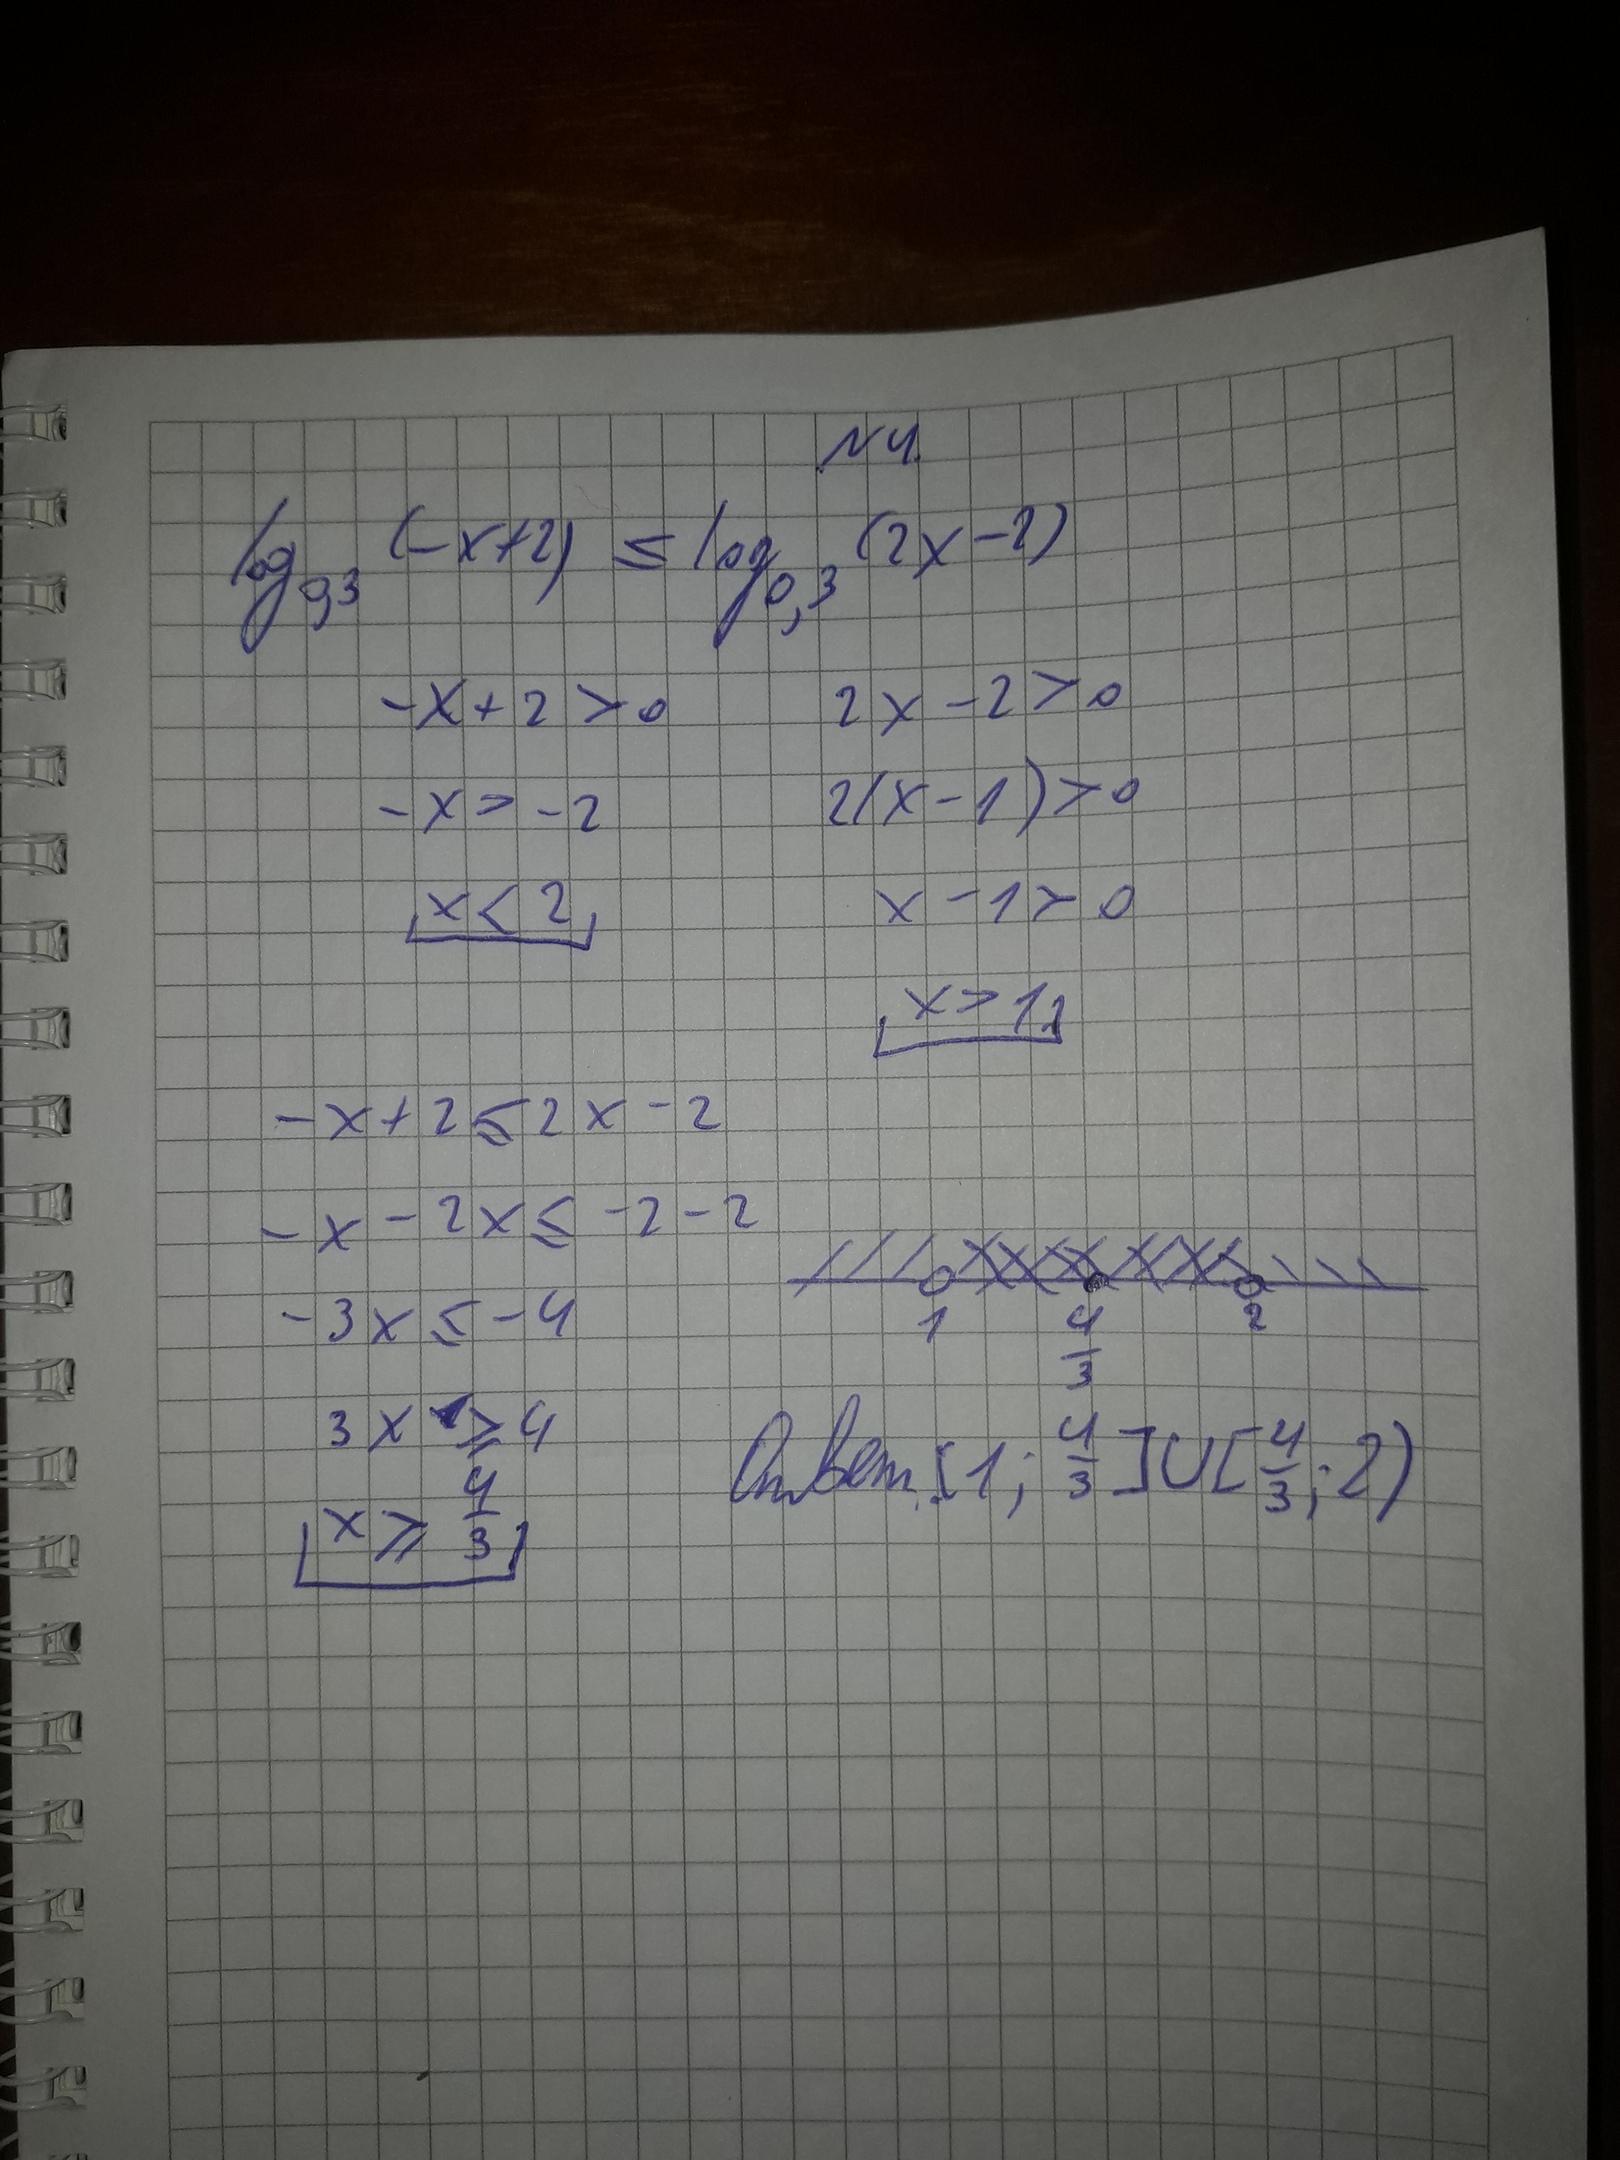 N4.
log₀,₃ (-x+2) ≤ log₀,₃ (2x-2)
-x+2>0 2x-2>0
-x>-2 2(x-1)>0
x<2 x-1>0
x>1
-x+2≤2x-2
-x-2x≤-2-2
-3x≤-4
1 4/3 2
3x≥4
x≥4/3
Ответ: [1; 4/3]∪[4/3; 2)